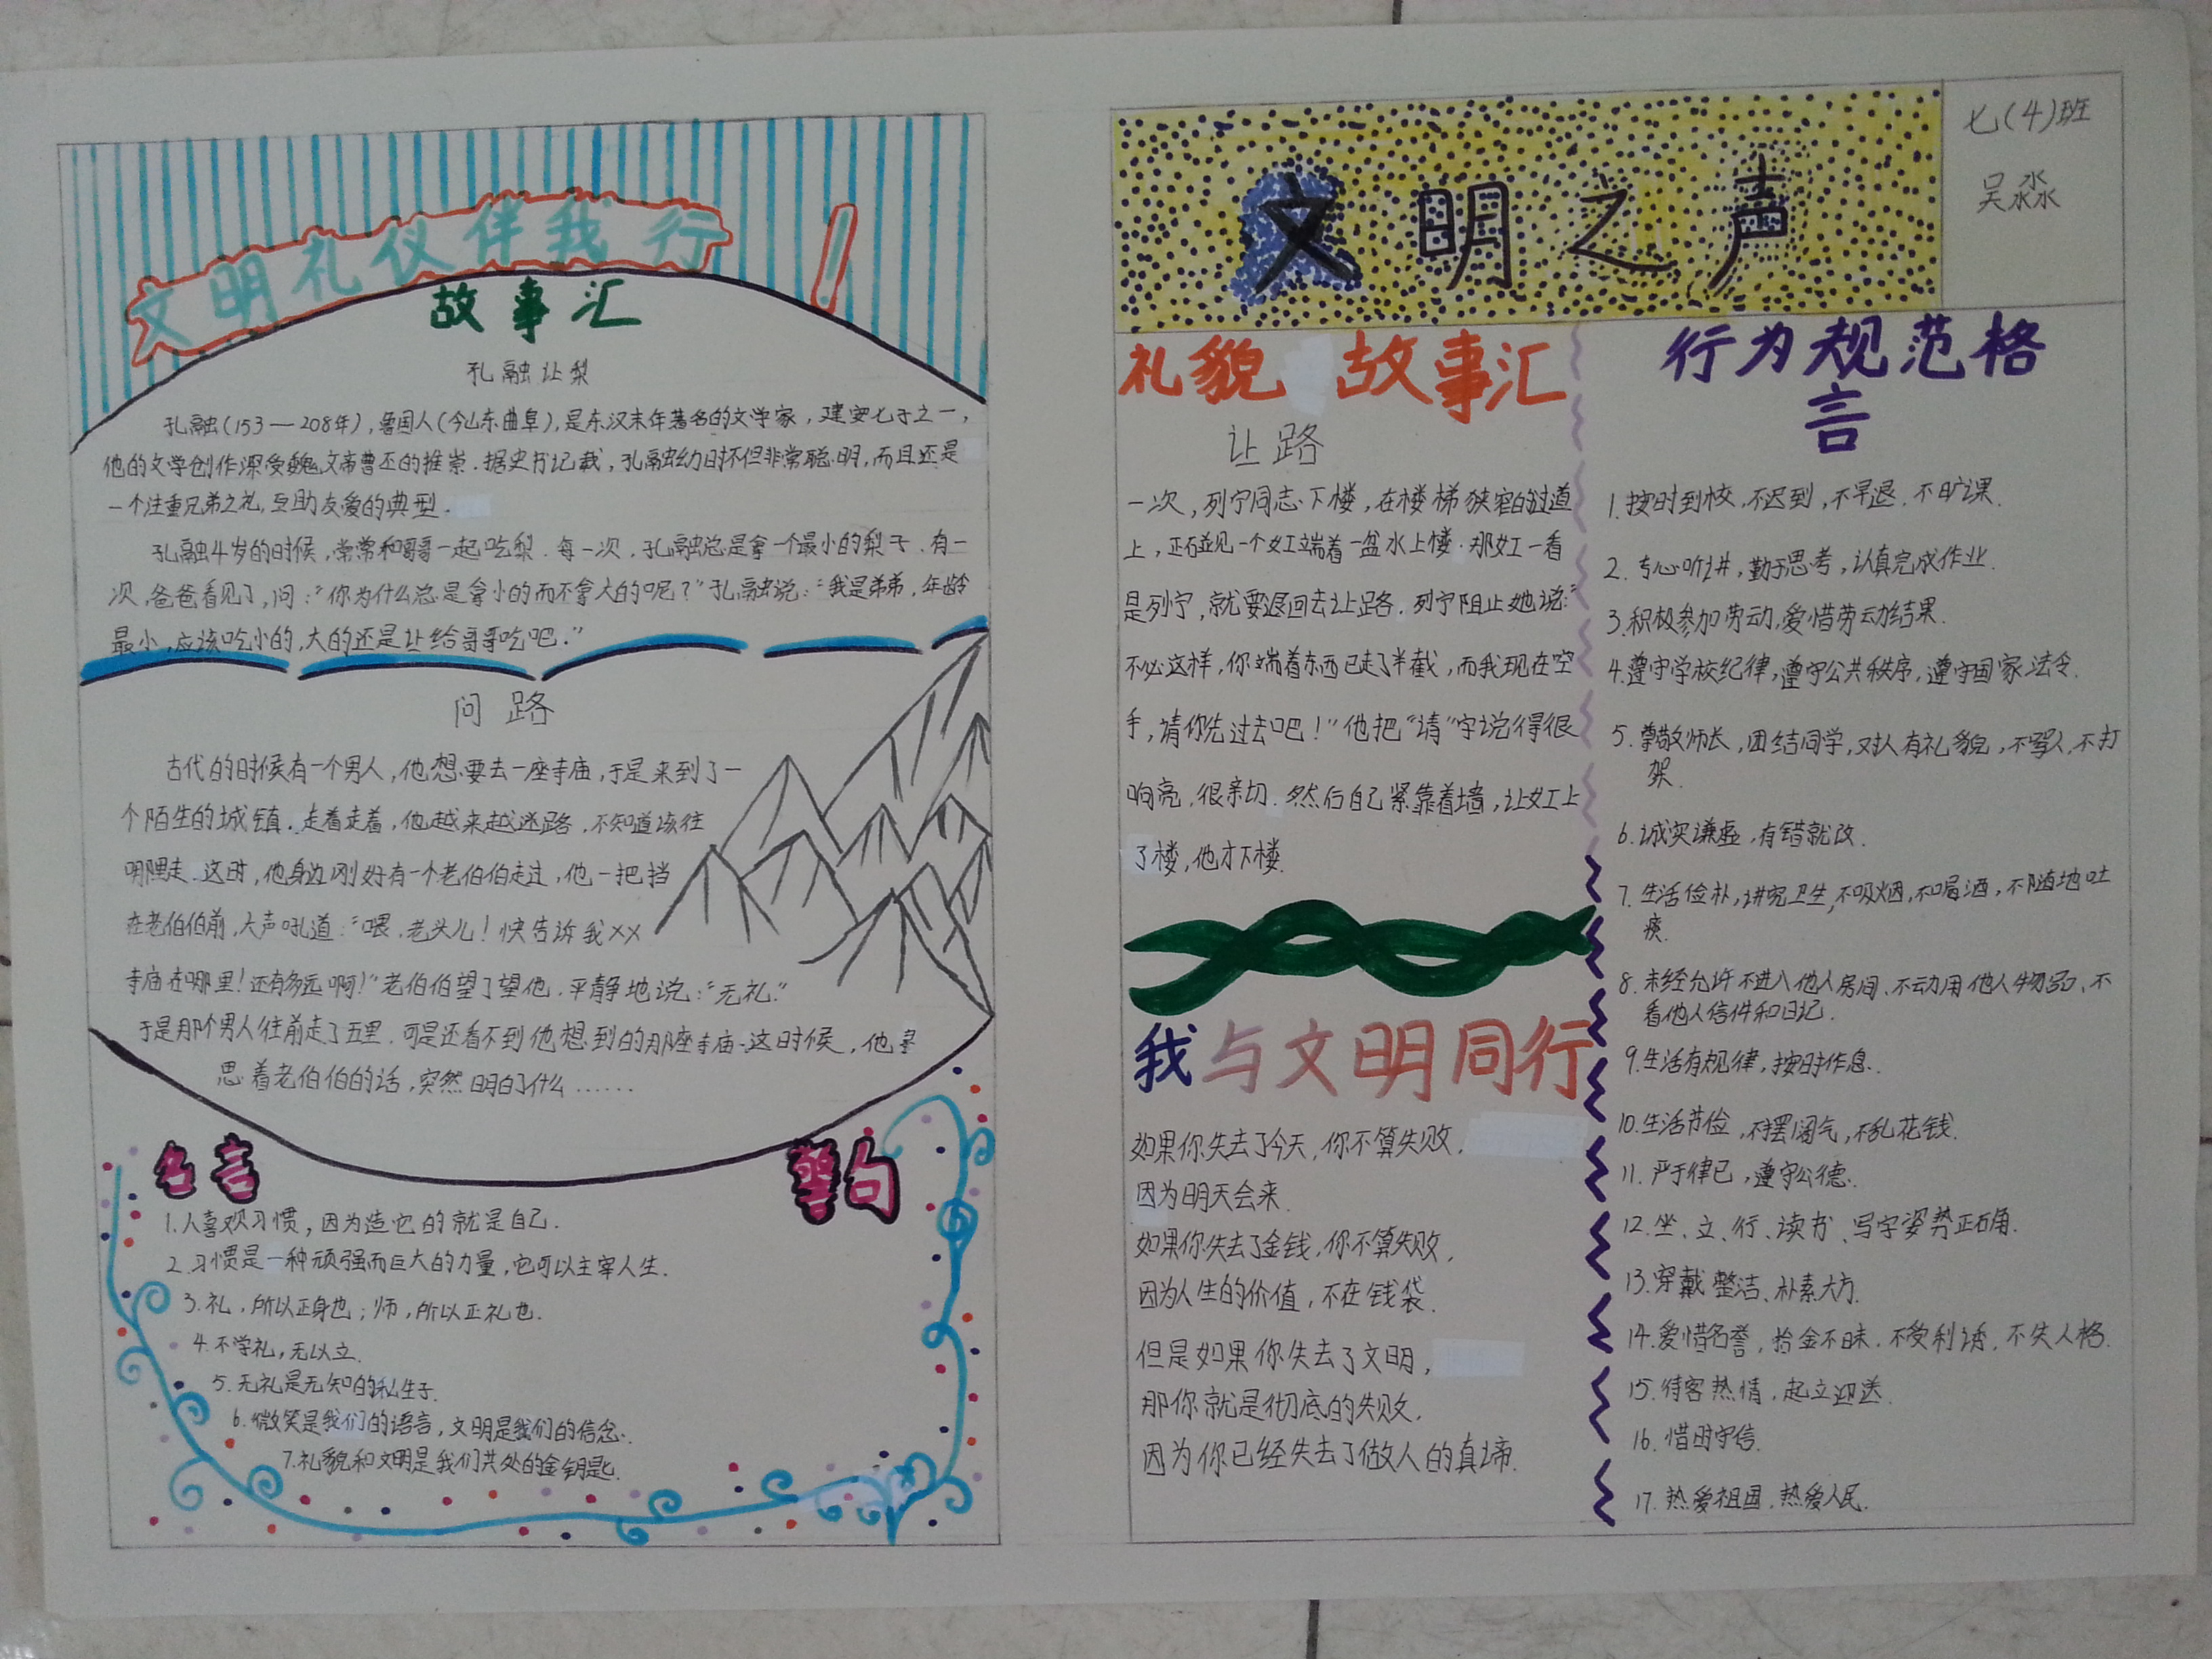 文明礼仪伴我行！
故事汇
孔融让梨
孔融(153—208年)，鲁国人(今山东曲阜)，是东汉末年著名的文学家，建安七子之一，
他的文学创作深受魏文帝曹丕的推崇.据史书记载，孔融幼时不但非常聪明，而且还是
一个注重兄弟之礼，互助友爱的典型.
孔融4岁的时候，常常和哥哥一起吃梨.每一次，孔融总是拿一个最小的梨子.有一
次，爸爸看见了，问："你为什么总是拿小的而不拿大的呢？"孔融说："我是弟弟，年龄
最小，应该吃小的，大的还是让给哥哥吃吧."
问路
古代的时候有一个男人，他想要去一座寺庙，于是来到了一
个陌生的城镇.走着走着，他越来越迷路，不知道该往
哪里走.这时，他身边刚好有一个老伯伯走过，他一把挡
在老伯伯前，大声吼道："喂，老头儿！快告诉我××
寺庙在哪里！还有多远啊！"老伯伯望了望他.平静地说："无礼."
于是那个男人往前走了五里.可是还看不到他想到的那座寺庙.这时候，他
思着老伯伯的话，突然明白了什么……
名言 警句
1.人喜欢习惯，因为造它的就是自己.
2.习惯是一种顽强而巨大的力量，它可以主宰人生.
3.礼，所以正身也；师，所以正礼也.
4.不学礼，无以立.
5.无礼是无知的私生子.
6.微笑是我们的语言，文明是我们的信念.
7.礼貌和文明是我们共处的金钥匙.
文明之声
七(4)班
吴淼淼
礼貌 故事汇
让路
一次，列宁同志下楼，在楼梯狭窄的过道
上，正碰见一个女工端着一盆水上楼.那女工一看
是列宁，就要退回去让路.列宁阻止她说："
不必这样，你端着东西已走了半截，而我现在空
手，请你先过去吧！"他把"请"字说得很
响亮，很亲切.然后自己紧靠着墙，让女工上
了楼，他才下楼.
我与文明同行
如果你失去了今天，你不算失败，
因为明天会来.
如果你失去了金钱，你不算失败，
因为人生的价值，不在钱袋.
但是如果你失去了文明，
那你就是彻底的失败，
因为你已经失去了做人的真谛.
行为规范格
言
1.按时到校，不迟到，不早退，不旷课.
2.专心听讲，勤于思考，认真完成作业.
3.积极参加劳动，爱惜劳动结果.
4.遵守学校纪律，遵守公共秩序，遵守国家法令.
5.尊敬师长，团结同学，对人有礼貌，不骂人，不打
架.
6.诚实谦虚，有错就改.
7.生活俭朴，讲究卫生，不吸烟，不喝酒，不随地吐
痰.
8.未经允许不进入他人房间、不动用他人物品、不
看他人信件和日记.
9.生活有规律，按时作息.
10.生活节俭，不摆阔气，不乱花钱.
11.严于律己，遵守公德.
12.坐、立、行、读书、写字姿势正确.
13.穿戴整洁、朴素大方.
14.爱惜名誉，拾金不昧，不受利诱，不失人格.
15.待客热情，起立迎送.
16.惜时守信.
17.热爱祖国，热爱人民.